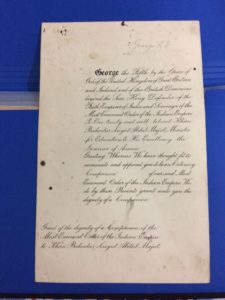 George R. I.
George the Fifth by the Grace of
God of the United Kingdom of Great Britain
and Ireland and of the British Dominions
beyond the Seas King Defender of the
Faith Emperor of India and Sovereign of the
Most Eminent Order of the Indian Empire
To Our trusty and well beloved Khan
Bahadur Saiyid Abdul Majid, Minister
for Education to His Excellency the
Governor of Assam
Greeting Whereas We have thought fit to
nominate and appoint you to be an Ordinary
Companion of our said Most
Eminent Order of the Indian Empire We
do by these Presents grant unto you the
dignity of a Companion
Grant of the dignity of a Companion of the
Most Eminent Order of the Indian Empire
to Khan Bahadur Saiyid Abdul Majid.